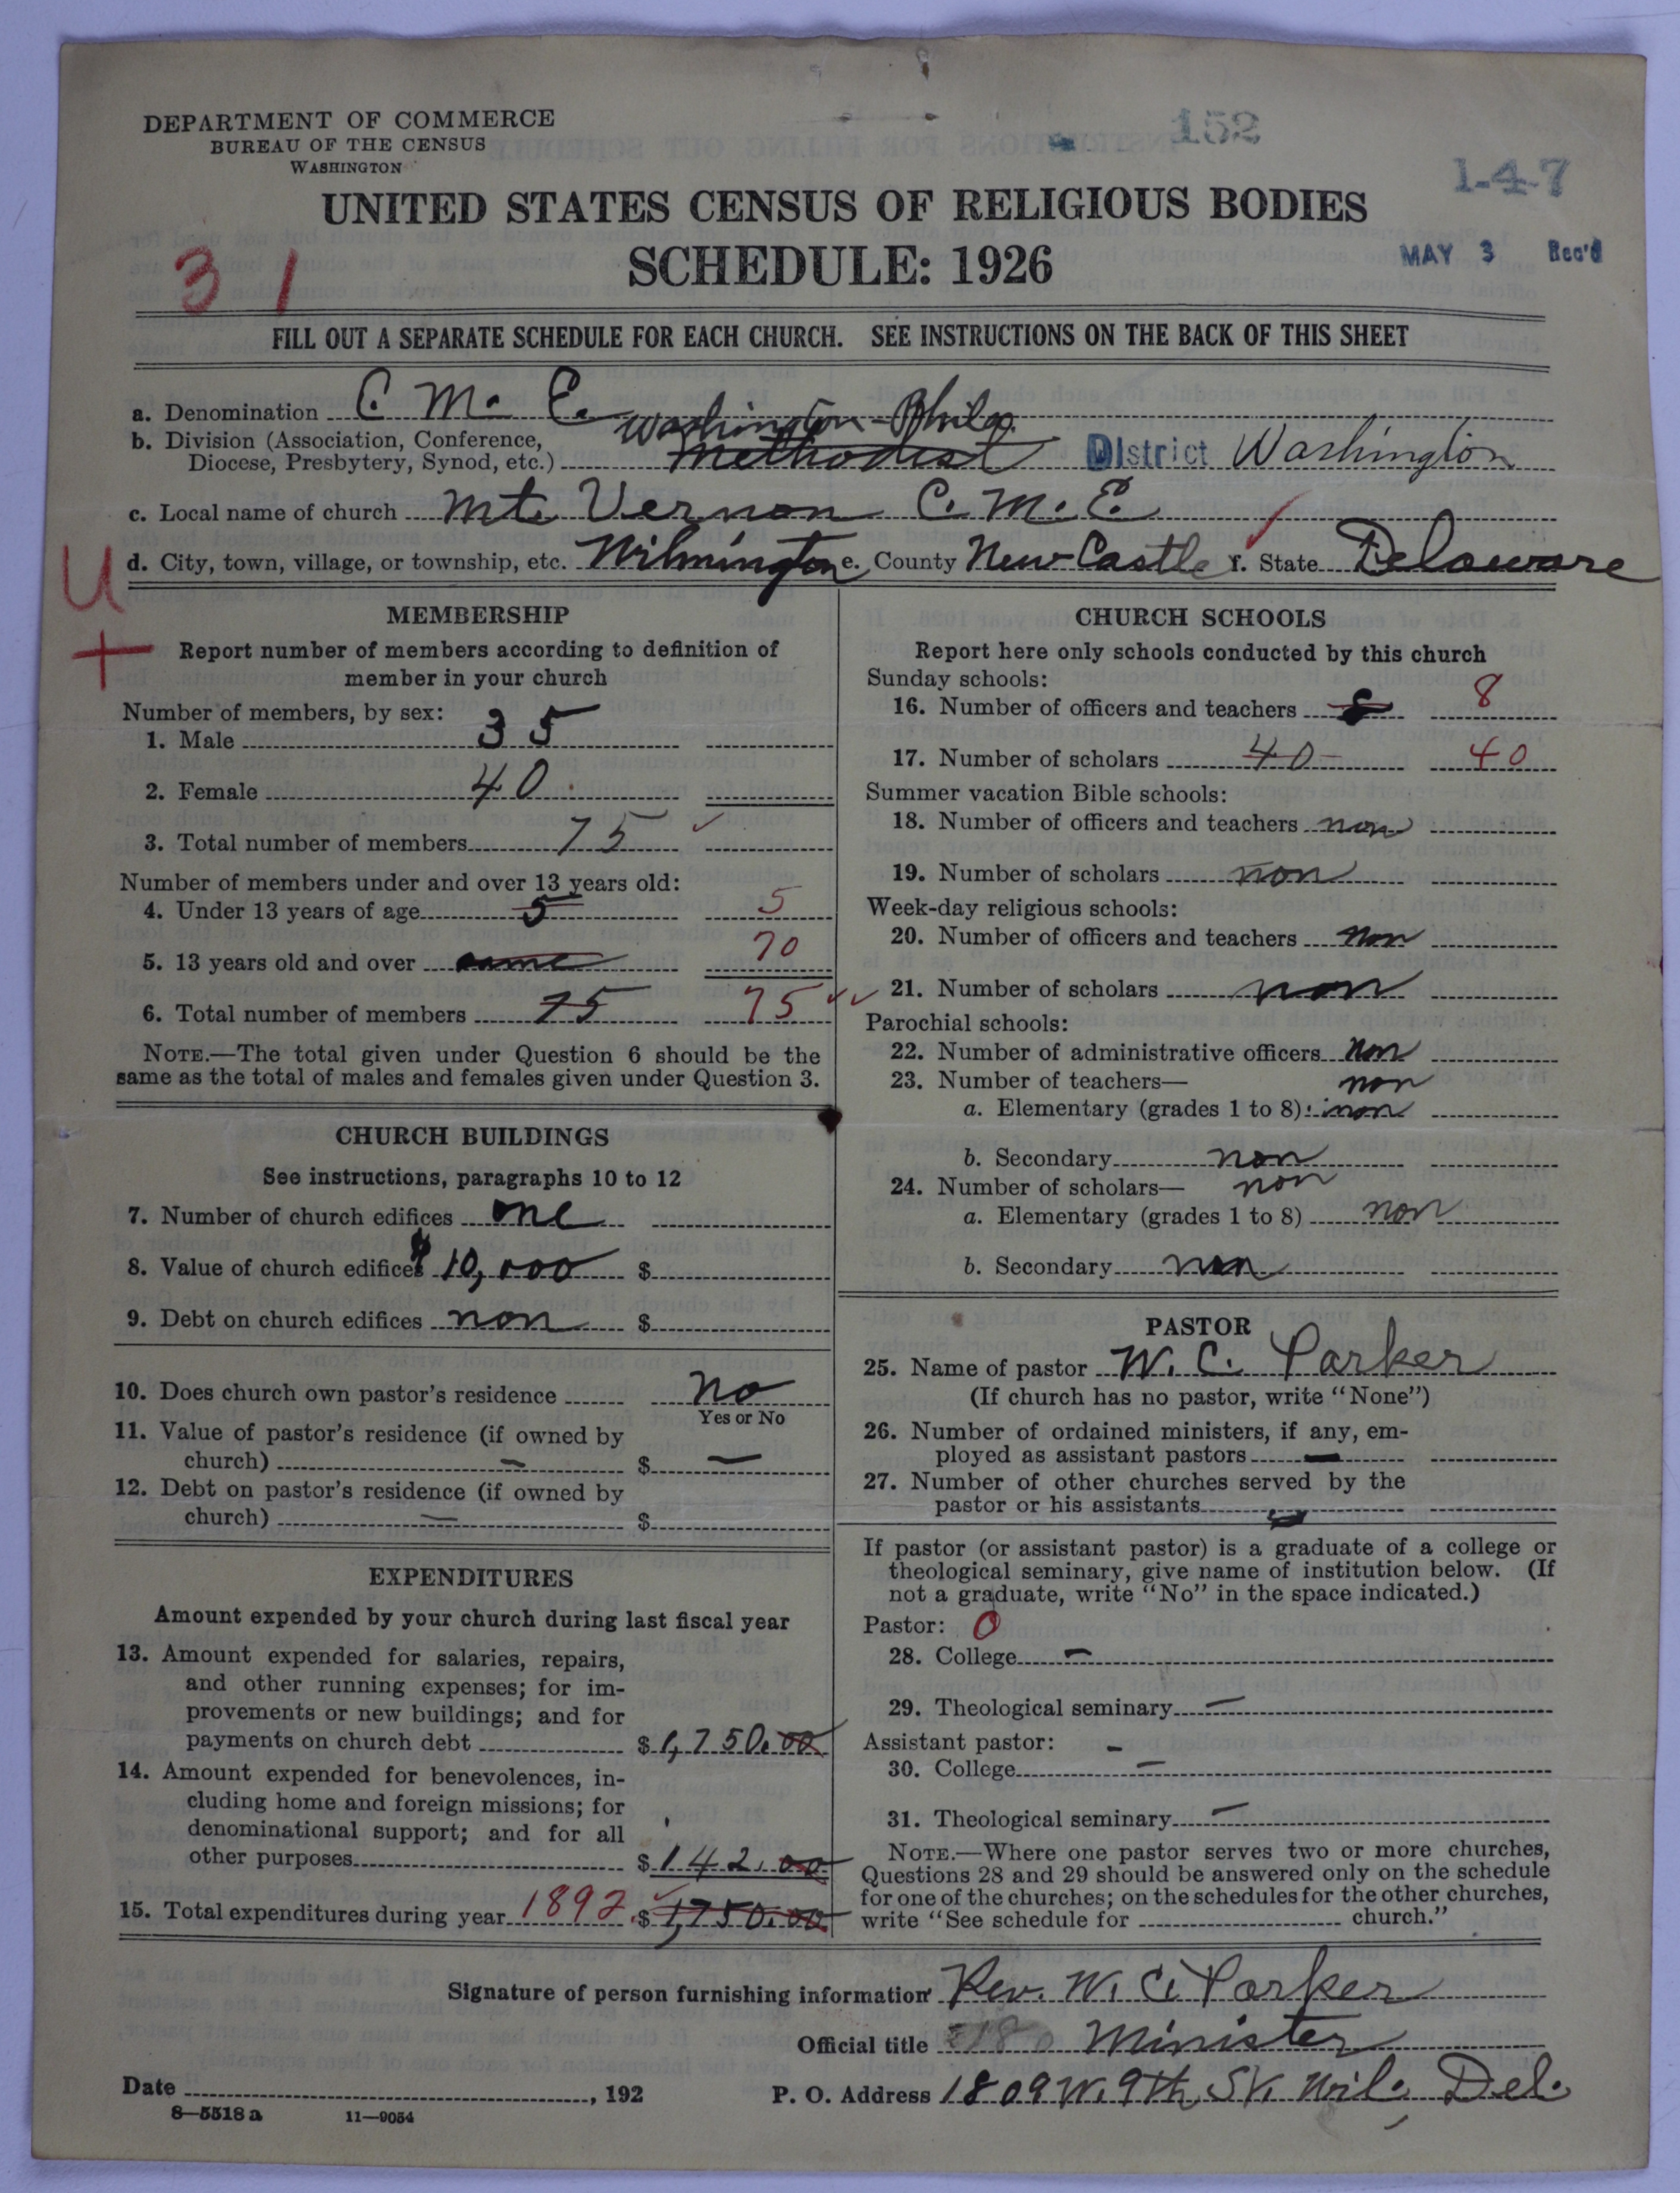 DEPARTMENT OF COMMERCE
BUREAU OF THE CENSUS
WASHINGTON
152
1-4-7
UNITED STATES CENSUS OF RELIGIOUS BODIES
SCHEDULE: 1926
MAY 3 Rec'd
31
FILL OUT A SEPARATE SCHEDULE FOR EACH CHURCH. SEE INSTRUCTIONS ON THE BACK OF THIS SHEET
a. Denomination C. M. E.
Washington-Phila.
b. Division (Association, Conference,
Diocese, Presbytery, Synod, etc.) Methodist District Washington
c. Local name of church Mt. Vernon C. M. E.
d. City, town, village, or township, etc. Wilmington e. County New Castle f. State Delaware
U
+
MEMBERSHIP
Report number of members according to definition of
member in your church
Number of members, by sex:
1. Male 35
2. Female 40
3. Total number of members 75
Number of members under and over 13 years old:
4. Under 13 years of age 5 5
5. 13 years old and over 70
6. Total number of members 75 75
NOTE.—The total given under Question 6 should be the
same as the total of males and females given under Question 3.
CHURCH BUILDINGS
See instructions, paragraphs 10 to 12
7. Number of church edifices one
8. Value of church edifices $10,000 $
9. Debt on church edifices non $
10. Does church own pastor's residence No
Yes or No
11. Value of pastor's residence (if owned by
church) — $ —
12. Debt on pastor's residence (if owned by
church) — $
EXPENDITURES
Amount expended by your church during last fiscal year
13. Amount expended for salaries, repairs,
and other running expenses; for im-
provements or new buildings; and for
payments on church debt $ 1,750.00
14. Amount expended for benevolences, in-
cluding home and foreign missions; for
denominational support; and for all
other purposes $ 142.00
15. Total expenditures during year 1892 $ 1,750.00
CHURCH SCHOOLS
Report here only schools conducted by this church
Sunday schools:
16. Number of officers and teachers 8 8
17. Number of scholars 40 40
Summer vacation Bible schools:
18. Number of officers and teachers non
19. Number of scholars non
Week-day religious schools:
20. Number of officers and teachers non
21. Number of scholars non
Parochial schools:
22. Number of administrative officers non
23. Number of teachers— non
a. Elementary (grades 1 to 8) non
b. Secondary non
24. Number of scholars— non
a. Elementary (grades 1 to 8) non
b. Secondary non
PASTOR
25. Name of pastor W. C. Parker
(If church has no pastor, write "None")
26. Number of ordained ministers, if any, em-
ployed as assistant pastors —
27. Number of other churches served by the
pastor or his assistants
If pastor (or assistant pastor) is a graduate of a college or
theological seminary, give name of institution below. (If
not a graduate, write "No" in the space indicated.)
Pastor: 0
28. College —
29. Theological seminary —
Assistant pastor: -
30. College —
31. Theological seminary —
NOTE.—Where one pastor serves two or more churches,
Questions 28 and 29 should be answered only on the schedule
for one of the churches; on the schedules for the other churches,
write "See schedule for church."
Signature of person furnishing information Rev. W. C. Parker
Official title Minister
Date , 192
P. O. Address 1809 W. 9th St. Wil. Del.
8—5518 a 11—9054